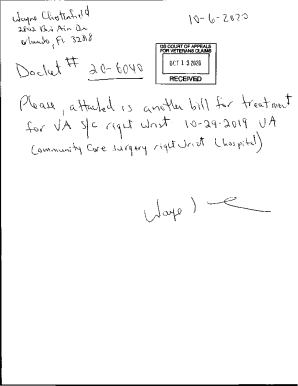 Wayne
10-6-2020
Orlando, FL
US COURT OF APPEALS
FOR VETERANS CLAIMS
OCT 13 2020
RECEIVED
Docket # 20-6040
Please, attached is another bill for treatment
for VA S/C right wrist 10-29-2019 VA
Community Care surgery right wrist (hospital)
Wayne